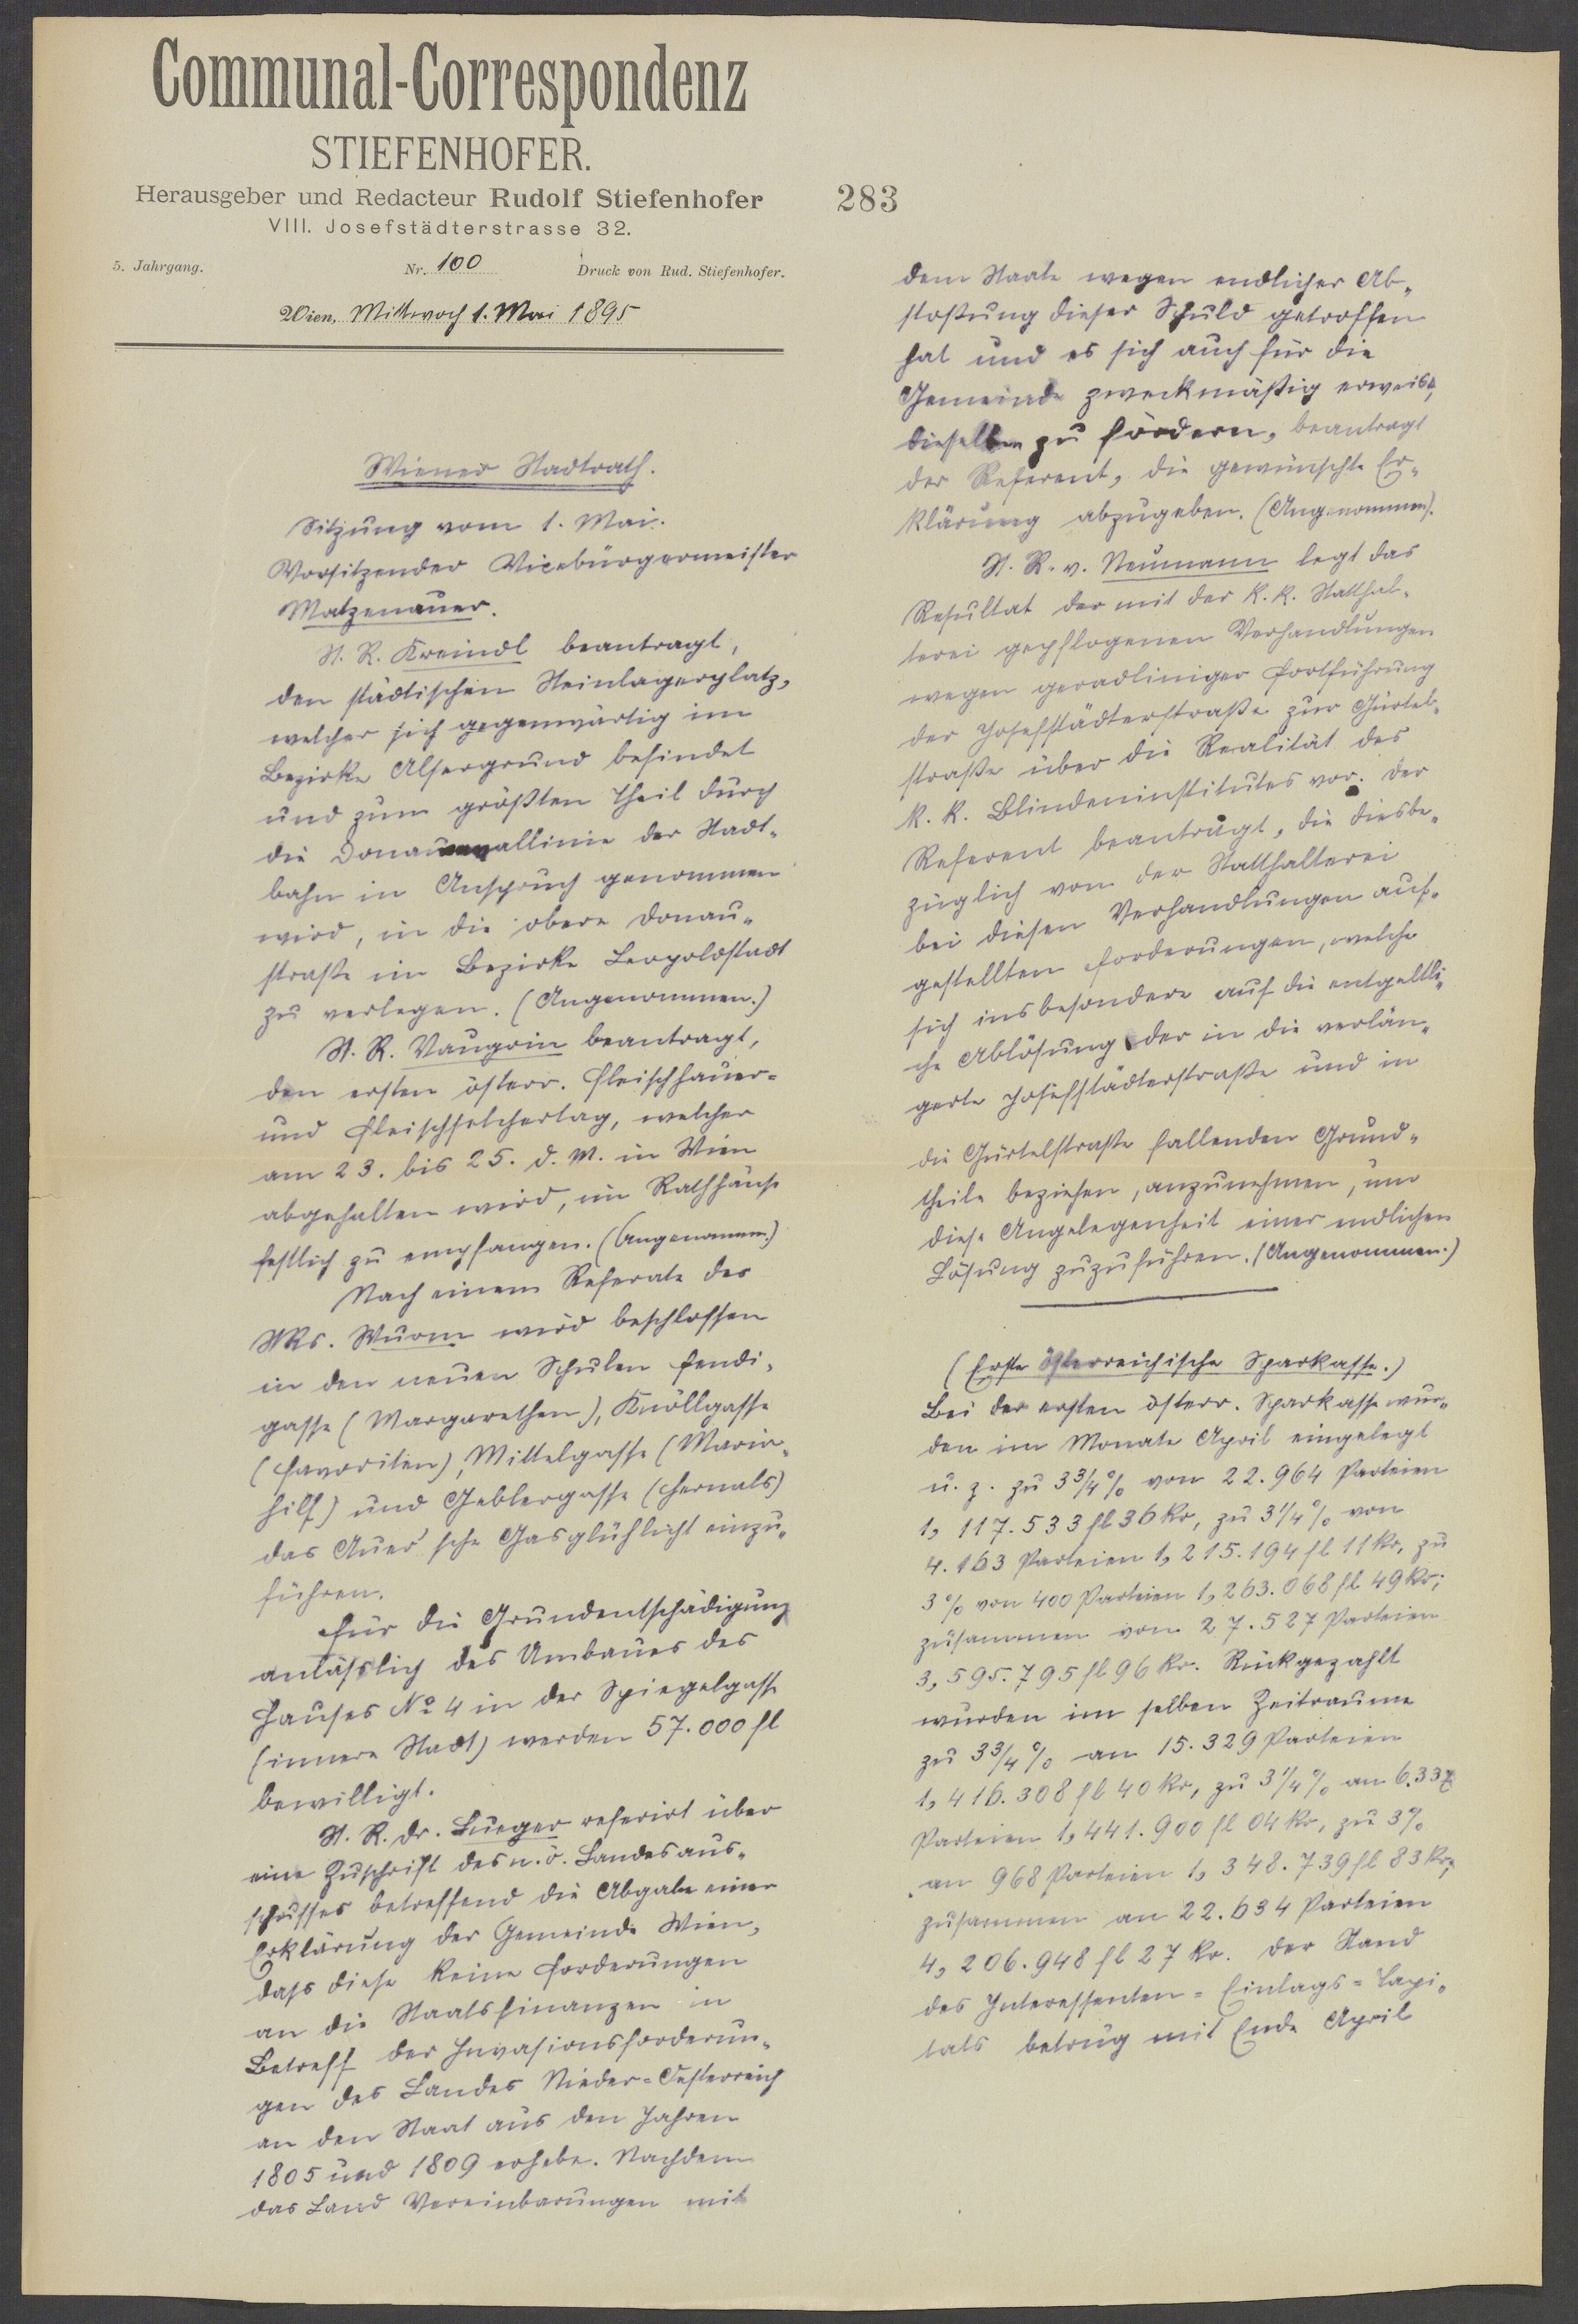 Communal-Correspondenz
STIEFENHOFER.
Herausgeber und Redacteur Rudolf Stiefenhofer
VIII. Josefstädterstrasse 32.
5. Jahrgang. Nr. 100 Druck von Rud. Stiefenhofer.
Wien, Mittwoch 1. Mai 1895
283
Wiener Stadtrath.
Sitzung vom 1. Mai.
Vorsitzender Vicebürgermeister
Matzenauer.
St. R. Kreindl beantragt,
den städtischen Steinlagerplatz,
welcher sich gegenwärtig im
Bezirke Alsergrund befindet
und zum größten Theil durch
die Donaucanallinie der Stadt-
bahn in Anspruch genommen
wird, in die obere Donau-
straße im Bezirke Leopoldstadt
zu verlegen. (Angenommen.)
St. R. Vaugoin beantragt,
den ersten österr. Fleischhauer-
und Fleischselchertag, welcher
am 23. bis 25. d. M. in Wien
abgehalten wird, im Rathhause
festlich zu empfangen. (Angenomm.)
Nach einem Referate des
StRs. Wurm wird beschlossen
in den neuen Schulen Fendi-
gasse (Margarethen), Knöllgasse
(Favoriten), Mittelgasse (Maria-
hilf) und Geblergasse (Hernals)
das Auer'sche Gasglühlicht einzu-
führen.
Für die Grundentschädigung
anläßlich des Umbaues des
Hauses No 4 in der Spiegelgasse
(innere Stadt) werden 57.000 fl
bewilligt.
St. R. Dr. Lueger referirt über
eine Zuschrift des n. ö. Landesaus-
schusses betreffend die Abgabe einer
Erklärung der Gemeinde Wien,
dass diese keine Forderungen
an die Staatsfinanzen in
Betreff der Invasionsforderun-
gen des Landes Nieder-Oesterreich
an den Staat aus den Jahren
1805 und 1809 erhebe. Nachdem
das Land Vereinbarungen mit
dem Staate wegen endlicher Ab-
stoßung dieser Schuld getroffen
hat und es sich auch für die
Gemeinde zweckmäßig erweist,
dieselben zu fördern, beantragt
der Referent, die gewünschte Er-
klärung abzugeben. (Angenommen).
St. R. v. Neumann legt das
Resultat der mit der k. k. Statthal-
terei gepflogenen Verhandlungen
wegen geradliniger Fortführung
der Josefstädterstraße zur Gürtel-
straße über die Realität des
k. k. Blindeninstitutes vor. Der
Referent beantragt, die diesbe-
züglich von der Statthalterei
bei diesen Verhandlungen auf-
gestellten Forderungen, welche
sich insbesondere auf die entgeltli-
che Ablösung der in die verlän-
gerte Josefstädterstraße und in
die Gürtelstraße fallenden Grund-
theile beziehen, anzunehmen, um
diese Angelegenheit einer endlichen
Lösung zuzuführen. (Angenommen.)
(Erste österreichische Sparkasse.)
Bei der ersten österr. Sparkasse wur-
den im Monate April eingelegt
u. z. zu 3 3/4 % von 22.964 Parteien
1,117.533 fl 36 kr, zu 3 1/4 % von
4.163 Parteien 1,215.194 fl 11 kr, zu
3 % von 400 Parteien 1,263.068 fl 49 kr;
zusammen von 27.527 Parteien
3,595.795 fl 96 kr. Rückgezahlt
wurden im selben Zeitraume
zu 3 3/4 % an 15.329 Parteien
1,416.308 fl 40 kr, zu 3 1/4 % an 6.337
Parteien 1,441.900 fl 04 kr, zu 3 %
an 968 Parteien 1,348.739 fl 83 kr,
zusammen an 22.634 Parteien
4,206.948 fl 27 kr. Der Stand
des Interessenten-Einlags-Capi-
tals betrug mit Ende April